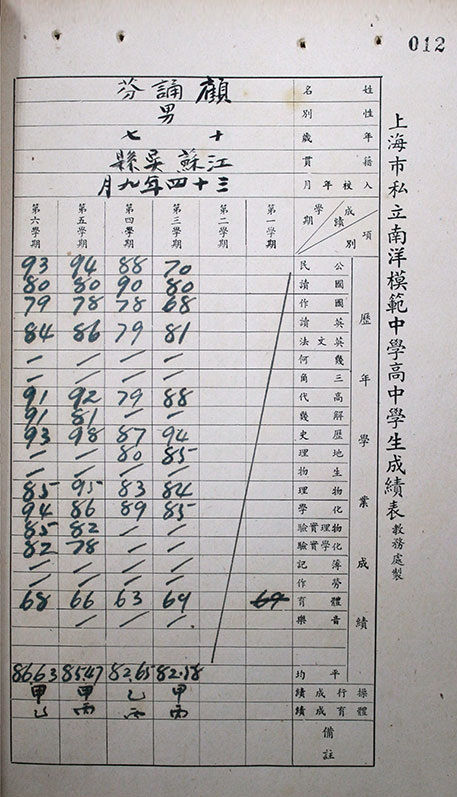 012
上海市私立南洋模範中學高中學生成績表 教務處製
姓名 顧誦芬
性別 男
年歲 十七
籍貫 江蘇吳縣
入校年月 三十四年九月
項別 成績 學期 第一學期 第二學期 第三學期 第四學期 第五學期 第六學期
歷年學業成績
公民 70 88 94 93
國讀 80 90 80 80
國作 68 78 78 79
英讀 81 79 86 84
英文法 — — — —
幾何 — — — —
三角 — — — —
高代 88 79 92 91
解幾 — — 81 91
歷史 94 87 98 93
地理 85 80 — —
生物 — — — —
物理 84 83 95 85
化學 85 89 86 94
物理實驗 — — 82 85
化學實驗 — — 78 82
簿記 — — — —
勞作 — — — —
體育 69 63 66 68
音樂 — — —
平均 82.58 82.65 85.47 86.63
操行成績 甲 乙 甲 甲
體育成績 丙 丙 丙 乙
備註